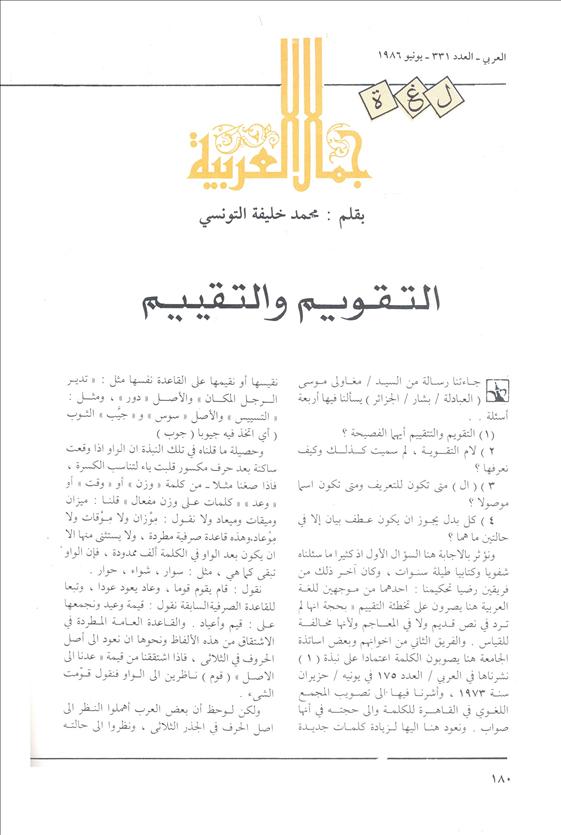 العربي - العدد ٣٣١ - يونيو ١٩٨٦
ل غ ة
جمال العربية
بقلم : محمد خليفة التونسي
التقويم والتقييم
جاءتنا رسالة من السيد / مغاولى موسى
( العبادلة / بشار / الجزائر ) يسألنا فيها أربعة
أسئلة . .
(١) التقويم والتتقييم أيهما الفصيحة ؟
٢ ) لام التقوية ، لم سميت كذلك وكيف
نعرفها ؟
٣ ) ( ال ) متى تكون للتعريف ومتى تكون اسما
موصولا ؟
٤ ) كل بدل يجوز ان يكون عطف بيان إلا في
حالتين ما هما ؟
ونؤثر بالاجابة هنا السؤال الأول اذ كثيرا ما سئلناه
شفويا وكتابيا طيلة سنوات ، وكان آخر ذلك من
فريقين رضيا تحكيمنا : احدهما من موجهين للغة
العربية هنا يصرون على تخطئة التقييم » بحجة انها لم
ترد في نص قديم ولا في المعاجم ولأنها مخالفة
للقياس . والفريق الثاني من اخوانهم وبعض اساتذة
الجامعة هنا يصوبون الكلمة اعتمادا على نبذة ( ١ )
نشرناها في العربي / العدد ١٧٥ في يونيه / حزيران
سنة ١٩٧٣ ، وأشرنا فيها الى تصويب المجمع
اللغوي في القاهرة للكلمة والى حجته في أنها
صواب . ونعود هنا اليها لزيادة كلمات جديدة
نقيسها أو نقيمها على القاعدة نفسها مثل : « تدير
الرجل المكان » والأصل « دور » ، ومثل :
« التسييس » والأصل « سوس » و « جيَّب » الثوب
( أي اتخذ فيه جيوبا ( جوب )
وحصيلة ما قلناه في تلك النبذة ان الواو اذا وقعت
ساكنة بعد حرف مكسور قلبت ياء لتناسب الكسرة ،
فاذا صغنا مثلا ـ من كلمة « وزن » أو « وقت » أو
« وعد » « كلمات على وزن مفعال » قلنا : ميزان
وميقات وميعاد ولا نقول : مِوْزان ولا مِوْقات ولا
مِوْعاد،وهذه قاعدة صرفية مطردة ، ولا يستثنى منها الا
ان يكون بعد الواو في الكلمة ألف ممدودة ، فإن الواو
تبقى كما هي ، مثل : سوار ، شواء ، حوار .
نقول : قام يقوم قوما ، وعاد يعود عودا ، وتبعا
للقاعدة الصرفية السابقة نقول : قيمة وعيد ونجمعها
على : قيم وأعياد . والقاعدة العامة المطردة في
الاشتقاق من هذه الألفاظ ونحوها ان نعود الى أصل
الحروف في الثلاثى ، فاذا اشتققنا من قيمة « عدنا الى
الاصل » ( قوم ) ناظرين الى الواو فنقول قوّمت
الشيء .
ولكن لوحظ أن بعض العرب أهملوا النظر الى
اصل الحرف في الجذر الثلاثى ، ونظروا الى حالته
١٨٠